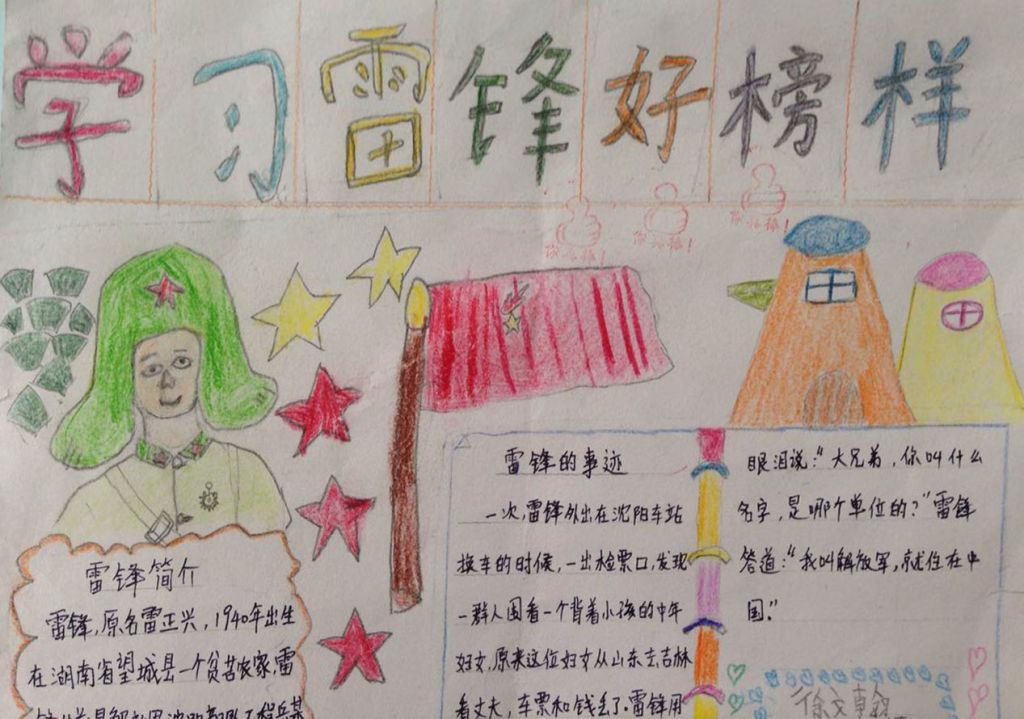 学习雷锋好榜样
你好棒!
你好棒!
你好棒!
雷锋简介
雷锋,原名雷正兴,1940年出生
在湖南省望城县一个贫苦农家,雷
雷锋的事迹
一次,雷锋外出在沈阳车站
换车的时候,一出检票口,发现
一群人围看一个背着小孩的中年
妇女,原来这位妇女从山东去吉林
看丈夫,车票和钱丢了.雷锋用
眼泪说:“大兄弟,你叫什么
名字,是哪个单位的?”雷锋
答道:“我叫解放军,就住在中
国.”
徐文翰